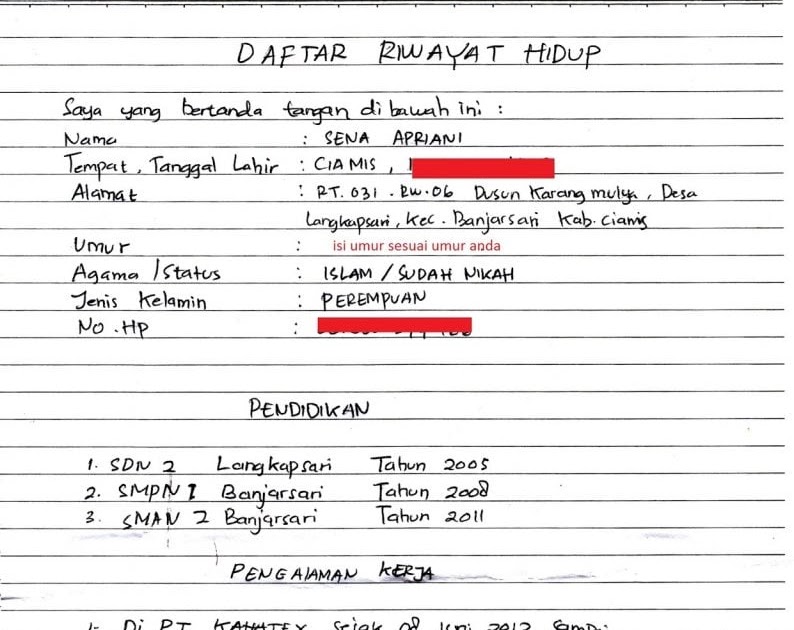 DAFTAR RIWAYAT HIDUP
Saya yang bertanda tangan di bawah ini :
Nama : SENA APRIANI
Tempat, Tanggal Lahir : CIAMIS ,
Alamat : RT. 031 . RW. 06 Dusun Karang mulya , Desa
Langkapsari, Kec. Banjarsari Kab. Ciamis
Umur : isi umur sesuai umur anda
Agama / Status : ISLAM / SUDAH NIKAH
Jenis Kelamin : PEREMPUAN
No. HP :
PENDIDIKAN
1. SDN 2 Langkapsari Tahun 2005
2. SMPN 1 Banjarsari Tahun 2008
3. SMAN 2 Banjarsari Tahun 2011
PENGALAMAN KERJA
1. Di PT. KAHATEX sejak 08 2012